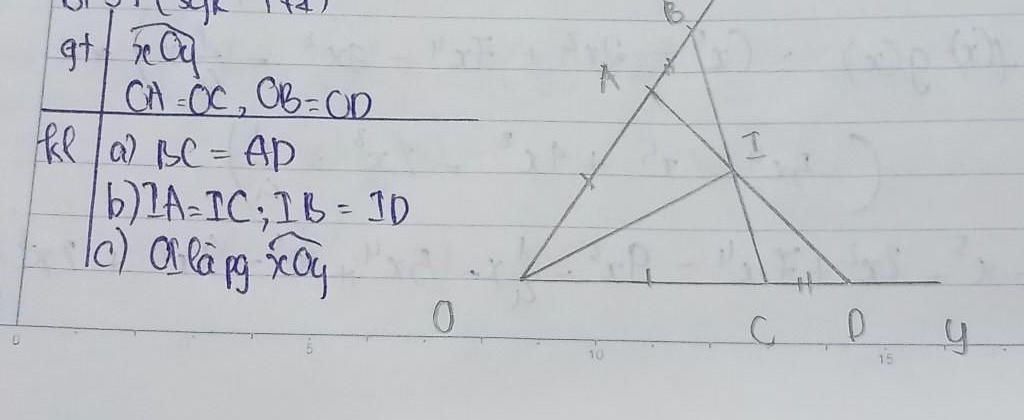 gt xOy
OA = OC, OB = OD
kl a) BC = AD
b) IA = IC; IB = ID
c) OI là pg xOy
B
A
I
O C D y
0 5 10 15